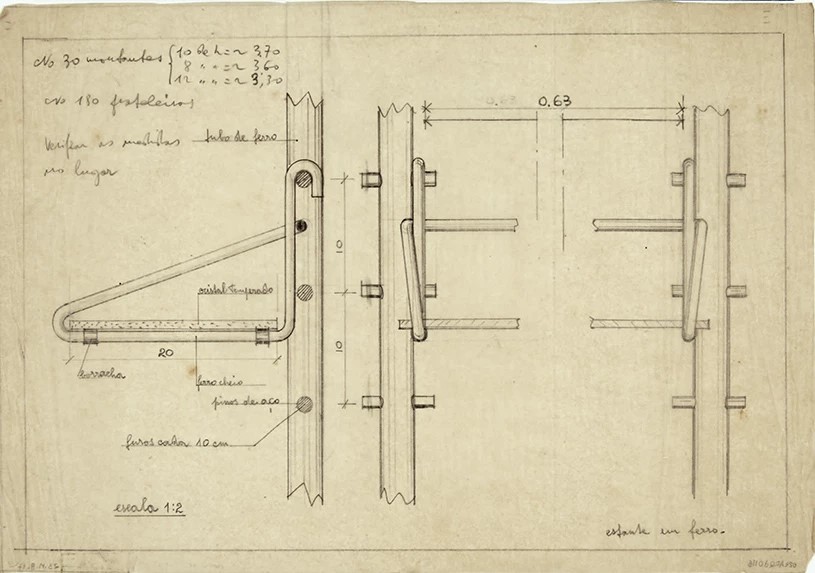 No 30 montantes { 10 de h = 3,70
8 " " = 3,60
12 " " = 3,30
No 180 prateleiras
Verificar as medidas
no lugar
tubo de ferro
0.63
10
10
cristal temperado
20
borracha
ferro cheio
pinos de aço
furos cada 10 cm
escala 1:2
estante em ferro.